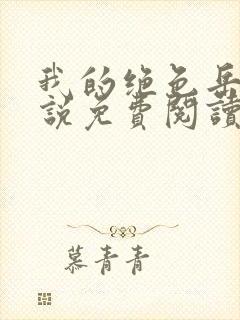 我的绝色岳
說免費閱讀
慕青青